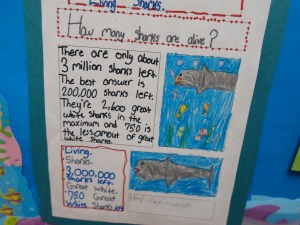 Living Sharks.
How many sharks are alive?
There are only about
3 million sharks left.
The best answer is
200,000 sharks left.
They're 2,600 great
white sharks in the
maximum and 750 is
the lessamout of great
white sharks.
Living.
Sharks.
3,000,000
sharks left.
Great white.
750 Great
White Sharks left